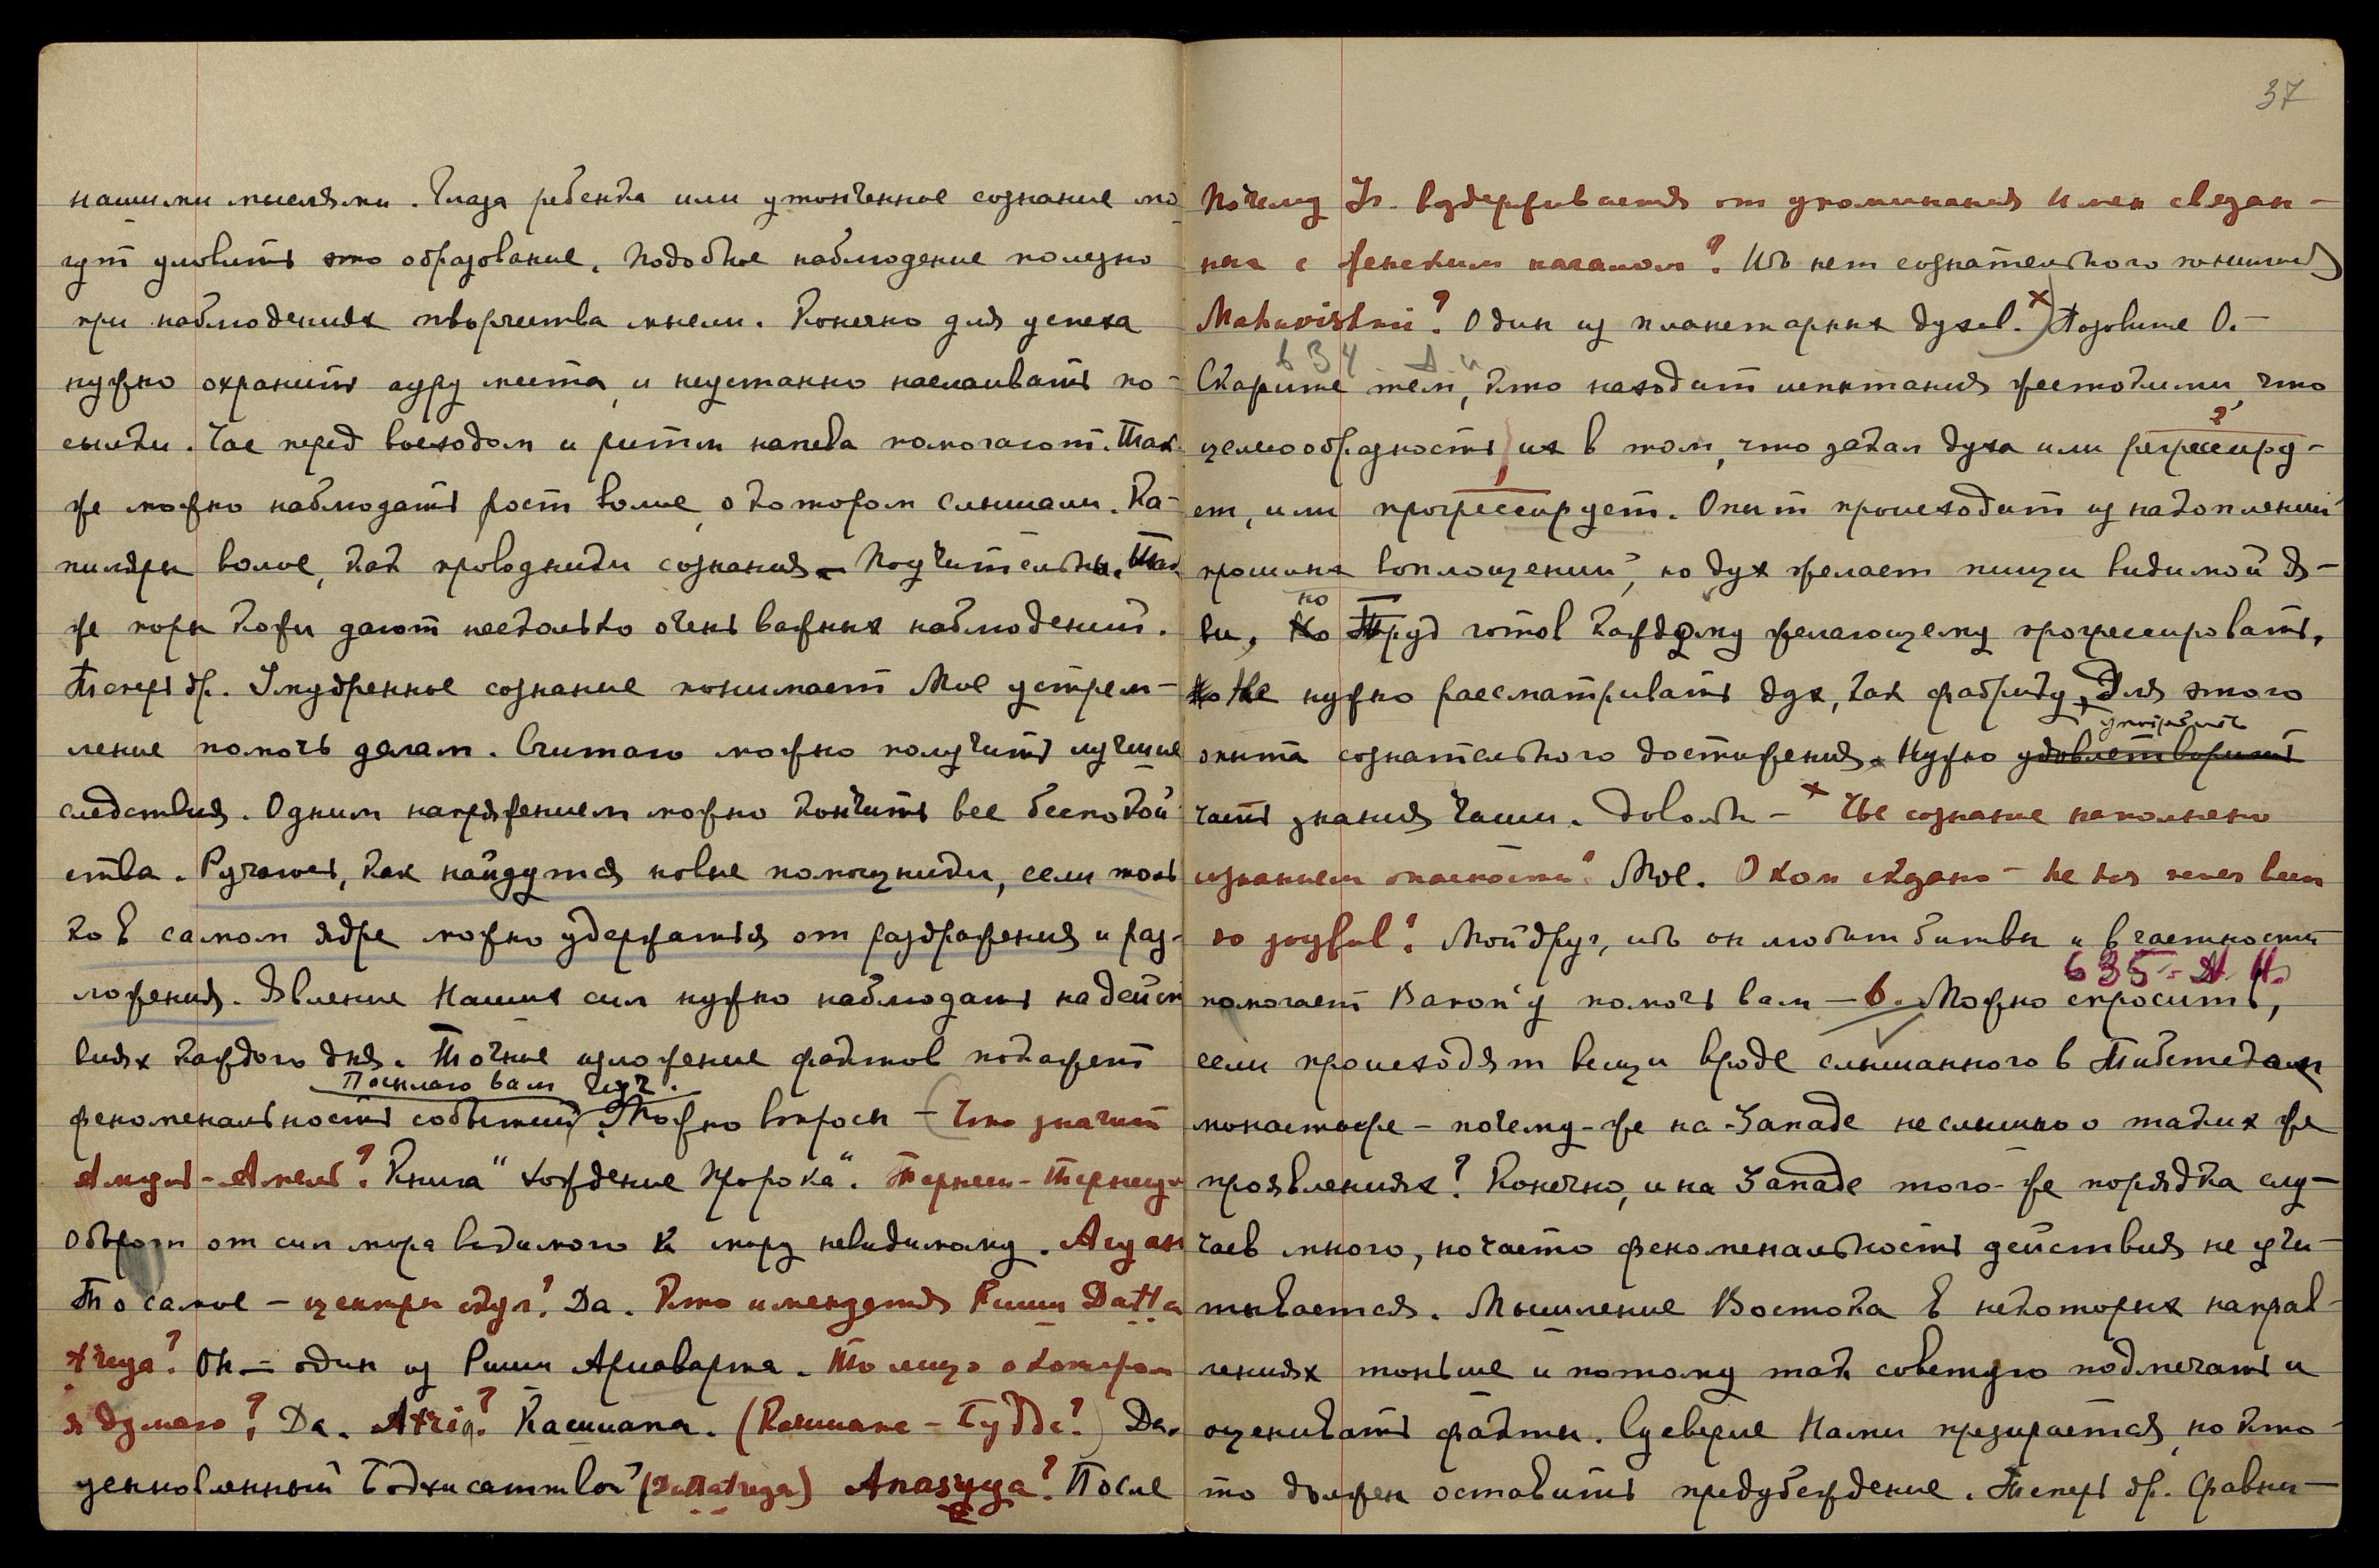 нашими мыслями. Глаза ребенка или утонченное сознание мо-
гут уловить это образование. Подобное наблюдение полезно
при наблюдениях творчества мысли. Конечно для успеха
нужно охранить ауру места, и неустанно наслаивать по-
сылки. Час перед восходом и ритм напева помогают. Так-
же можно наблюдать рост волос, о котором слышали. Ка-
пиляры волос, как проводники сознания – поучительны. Так
же поры кожи дают несколько очень важных наблюдений.
Теперь др. Умудренное сознание понимает Мое устрем-
ление помочь делам. Считаю можно получить лучшие
следствия. Одним напряжением можно кончить все беспокой
ства. Ручаюсь, как найдутся новые помощники, если толь
ко в самом ядре можно удержаться от раздражения и раз-
ложения. Явление Наших сил нужно наблюдать на дейст
виях каждого дня. Точное изложение фактов покажет
Посылаю вам
феноменальность событий. Можно вопросы – (Что значит
Амуль-Амель? Книга "Хождение Пророка".
Оборот от сил мира видимого к миру невидимому.
То самое – центры скул? Да. Кто именуется Риши Datta
treya? Он – один из Риши Ариаварта. То лицо о котором
я думаю? Да. Atria? Касшиапа. (Касшиапе – Будде?) Да.
установленный Бодхисаттвой (Dattatreya) Anasyya? После
37
Почему Ур. воздерживается от упоминания Имен связан-
ных с женским началом? Ибо нет сознательного понимания
Mahavishnu? Один из планетарных духов. x) Позовите О. –
634
Скажите тем, кто находит испытания жестокими, что
?
целесообразность их в том, что закал духа или регрессиру-
ет, или прогрессирует. Опыт происходит из накоплений
прошлых воплощений, но дух желает пищи видимой я-
но
ви. Но Труд готов каждому желающему прогрессировать.
Но Не нужно рассматривать дух, как фабрику, Для этого
утвердить
опыта сознательного достижения. Нужно удовлетворить
часть знания Чаши. Довольно – x Чье сознание наполнено
изранием опасности? Мое. О ком сказано – he has never been
so joyful? Мой друг, ибо он любит битвы и в частности
635
помогает Baron'у помочь вам – 6. Можно спросить,
если происходят вещи вроде слышанного в Тибетском
монастыре – почему-же на Западе не слышно о таких же
проявлениях? Конечно, и на Западе того-же порядка слу-
чаев много, но часто феноменальность действия не учи-
тывается. Мышление Востока в некоторых направ-
лениях тоньше и потому так советую подмечать и
оценивать факты. Суеверие Нами презирается, но кто-
то должен оставить предубеждение. Теперь др. Сравни-